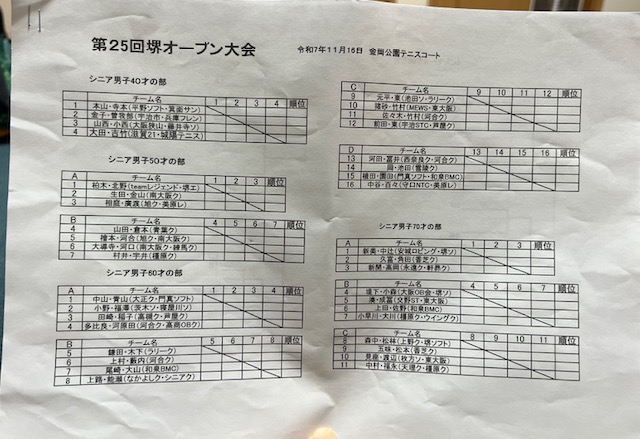 第25回堺オープン大会
令和7年11月16日 金岡公園テニスコート
シニア男子40才の部
チーム名 1 2 3 4 順位
1 本山・寺本(平野ソフト・箕面サン)
2 金子・曽我部(宇治市・兵庫フレン)
3 山西・小西(大阪狭山・藤井寺ソ)
4 太田・吉竹(滋賀21・城陽テニス)
シニア男子50才の部
A チーム名 1 2 3 順位
1 柏木・北野(teamレジェンド・堺エ)
2 生田・金山(南大阪ク)
3 相庭・廣渡(旭ク・美原レ)
B チーム名 4 5 6 7 順位
4 山田・倉本(青葉ク)
5 檜本・河合(旭ク・南大阪ク)
6 大導寺・河口(南大阪ク・練馬ク)
7 村井・宇井(橿原ク)
シニア男子60才の部
A チーム名 1 2 3 4 順位
1 中山・青山(大正ク・門真ソフト)
2 小野・福澤(茨木ソ・寝屋川ソ)
3 田崎・稲子(高槻ク・芦屋ク)
4 多比良・河原田(河合ク・高商OBク)
B チーム名 5 6 7 8 順位
5 鎌田・木下(ラリーク)
6 上村・薮内(河合ク)
7 尾崎・大山(和泉BMC)
8 上路・能瀬(なかよしク・シニアク)
C チーム名 9 10 11 12 順位
9 元平・東(池田ソ・ラリーク)
10 ・竹村(MEWS・東大阪)
11 佐々木・竹村(河合ク)
12 前田・東(宇治STC・芦屋ク)
D チーム名 13 14 15 16 順位
13 河田・冨井(西奈良ク・河合ク)
14 ・池田(雪陵ク)
15 植田・園田(門真ソフト・和泉BMC)
16 中谷・百々(守口NTC・美原レ)
シニア男子70才の部
A チーム名 1 2 3 順位
1 新美・中辻(安城ロビング・堺ソ)
2 久富・角田(香芝ク)
3 新開・高岡(永遠ク・軒昇ク)
B チーム名 4 5 6 7 順位
4 堰下・小森(大阪OB会・堺ソ)
5 湊・成冨(交野ST・東大阪)
6 上田・佐野(和泉BMC)
7 小早川・大川(橿原ク・ウイングク)
C チーム名 8 9 10 11 順位
8 森中・松林(上野ク・堺ソフト)
9 五味・松本(香芝ク)
10 見座・渡辺(枚方ソ・東大阪)
11 中村・福永(天理ク・橿原ク)